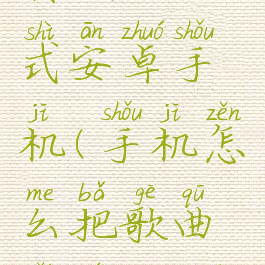 shì ān zhuó shǒu
式安卓手
jī shǒu jī zěn
机(手机怎
me bǎ gē qū
么把歌曲